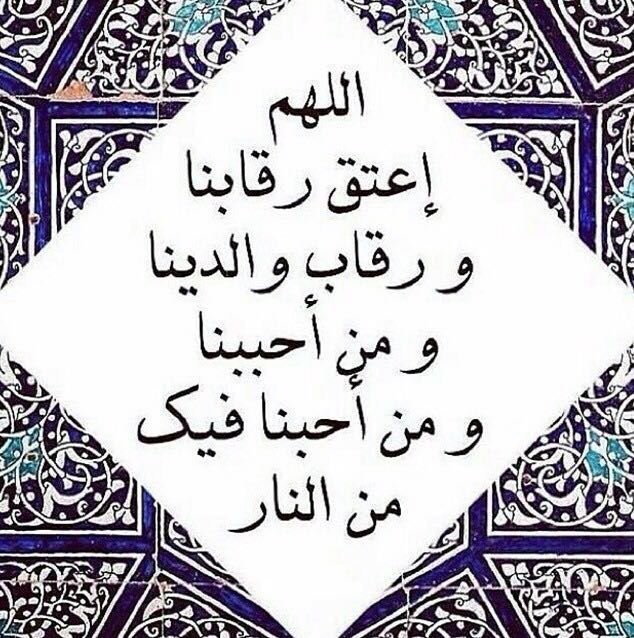 اللهم
إعتق رقابنا
و رقاب والدينا
و من أحببنا
و من أحبنا فيک
من النار